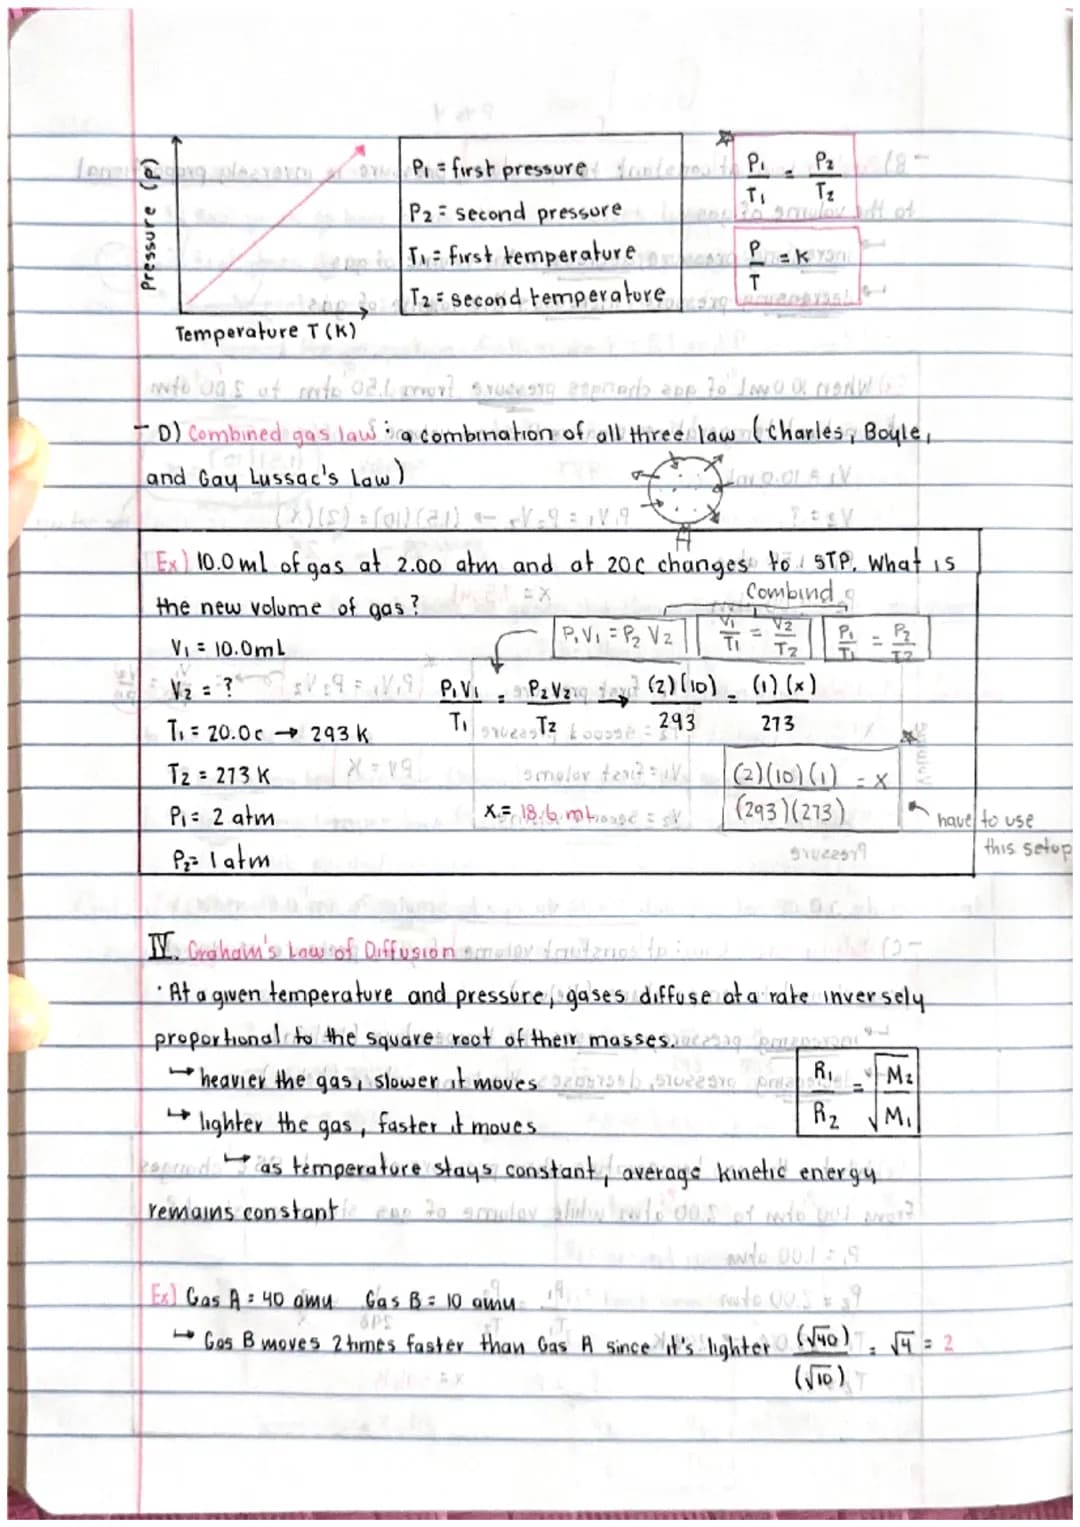 Pressure (P)
Temperature T (K)
P1 = first pressure
P2 = second pressure
T1 = first temperature
T2 = second temperature
P1/T1 = P2/T2
P/T = K
- D) Combined gas law : a combination of all three law (Charles, Boyle,
and Gay Lussac's Law)
Ex) 10.0ml of gas at 2.00 atm and at 20C changes to STP. What is
the new volume of gas?
Combind
P1V1 = P2V2 V1/T1 = V2/T2 P1/T1 = P2/T2
V1 = 10.0mL
V2 = ?
T1 = 20.0c → 293 K
T2 = 273 K
P1 = 2 atm
P2 = 1 atm
P1V1/T1 = P2V2/T2 → (2)(10)/293 = (1)(x)/273
(2)(10)(1)/(293)(273) = x
X = 18.6 mL
have to use
this setup
IV. Graham's Law of Diffusion
· At a given temperature and pressure, gases diffuse at a rate inversely
proportional to the square root of their masses.
↳ heavier the gas, slower it moves
↳ lighter the gas, faster it moves
↳ as temperature stays constant, average kinetic energy
remains constant
R1/R2 = √M2/√M1
Ex) Gas A = 40 amu Gas B = 10 amu
↳ Gas B moves 2 times faster than Gas A since it's lighter (√40)/(√10) = √4 = 2